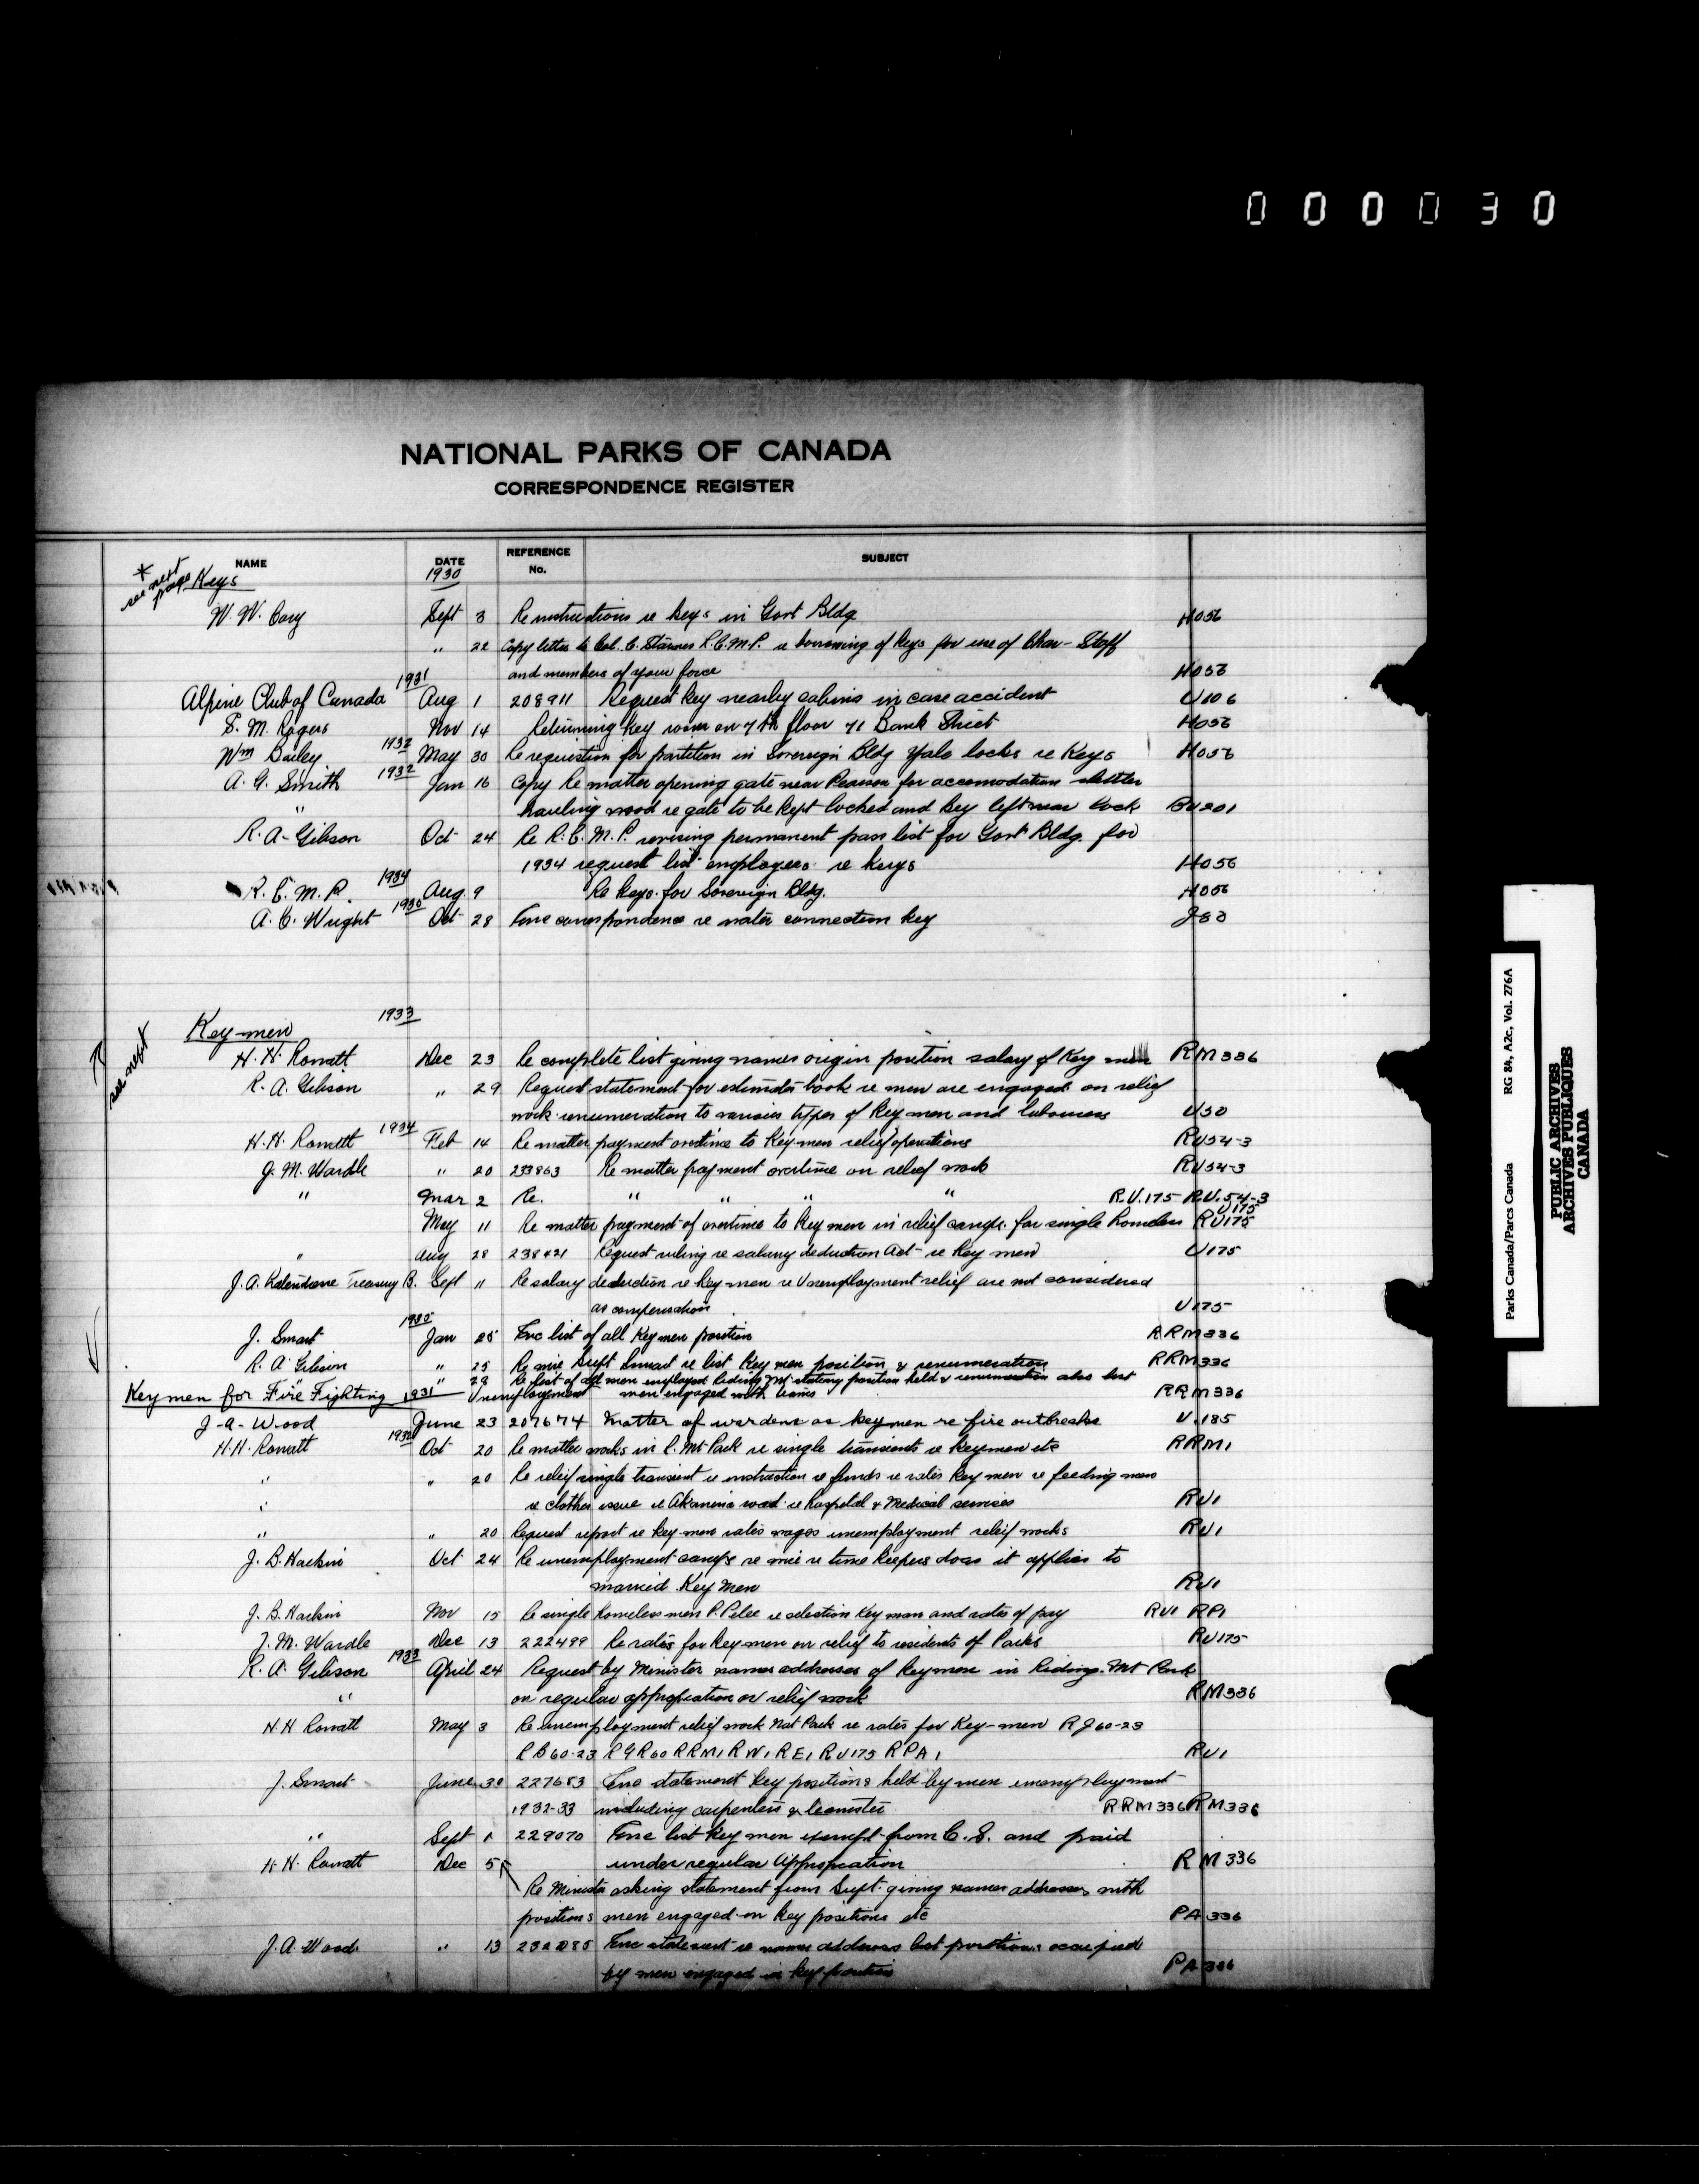 000030
NATIONAL PARKS OF CANADA
CORRESPONDENCE REGISTER
NAME DATE REFERENCE No. SUBJECT
* see next page Keys 1930
W. W. Cory Sept 3 Re instructions re keys in Govt Bldg H056
" 22 Copy letter to Col. C. Starnes R.C.M.P. re borrowing of keys for use of Char-Staff
and members of your force H056
1931
Alpine Club of Canada Aug 1 208911 Request key nearby cabins in case accident U106
S. M. Rogers Nov 14 Returning key room on 7th floor 71 Bank Street H056
Wm Bailey 1932 May 30 Re requisition for partition in Sovereign Bldg Yale locks re Keys H056
A. G. Smith 1932 Jan 16 Copy Re matter opening gate near for accomodation
hauling wood re gate to be kept locked and key left near lock BU201
R. A. Gibson Oct 24 Re R.C.M.P. revising permanent pass list for Govt Bldg. for
1934 request list employees re keys H056
R. C. M. P. 1934 Aug 9 Re keys for Sovereign Bldg. H056
A. C. Wright Oct 28 Enc correspondence re water connection key
see next
Key-men 1933
H. H. Rowatt Dec 23 Re complete list giving names origin position salary of Key men RM336
R. A. Gibson " 29 Request statement for estimates book re men are engaged on relief
work renumeration to various types of key men and labourers U50
H. H. Rowatt 1934 Feb 14 Re matter payment overtime to Key men relief operations RU54-3
J. M. Wardle " 20 233863 Re matter payment overtime on relief work RU54-3
" Mar 2 Re. " " " " R.U.175 R.U.54-3
U175
May 11 Re matter payment of overtime to key men in relief camps for single homeless RU175
" Aug 28 238421 Request ruling re salary deduction Act re Key men U175
J. A. Treasury B. Sept 11 Re salary deduction re key men re Unemployment relief are not considered
as compensation U175
1935
J. Smart Jan 25 Enc list of all Key men position RRM336
R. A. Gibson " 25 Re mie Supt Smart re list Key men position & renumeration RRM336
" " 29 Re list of all men employed Riding Mt stating position held & renumeration also list
Key men for Fire Fighting 1931 Unemployment men engaged with teams RRM336
J-A-Wood June 23 207674 Matter of wardens as key men re fire outbreaks U.185
H. H. Rowatt 1932 Oct 20 Re matter works in R. Mt Park re single transients re keymen etc RRM1
" " 20 Re relief single transient re instruction re funds re rates key men re feeding men
" re clothes issue re Akamina road re hospital & Medical services RU1
" " 20 Request report re key men rates wages unemployment relief works RU1
J. B. Harkin Oct 24 Re unemployment camps re mie re time keepers does it applies to
married Key Men RU1
J. B. Harkin Nov 15 Re single homeless men P. Pelee re selection Key man and rates of pay RU1 RP1
J. M. Wardle Dec 13 222499 Re rates for key-men on relief to residents of Parks RU175
R. A. Gibson 1933 April 24 Request by Minister names addresses of key men in Riding. Mt Park
" on regular appropriation or relief work RM336
H H Rowatt May 3 Re unemployment relief work Nat Park re rates for Key-men RJ60-23
RB60-23 RGR60 RRM1 RW1 RE1 RU175 RPA1 RU1
J. Smart June 30 227653 Enc statement key positions held by men unemployment
1932-33 including carpenters & teamster RRM336 RM336
" Sept 1 229070 Enc list key men exempt from C. S. and paid
H. H. Rowatt Dec 5 under regular Appropriation RM336
Re Minister asking statement from Supt. giving names addresses with
positions men engaged on key positions etc PA336
J. A. Wood " 13 Enc statement re names address list positions occupied
by men engaged in key position PA336
Parks Canada/Parcs Canada RG 84, A2c, Vol. 276A
PUBLIC ARCHIVES
ARCHIVES PUBLIQUES
CANADA